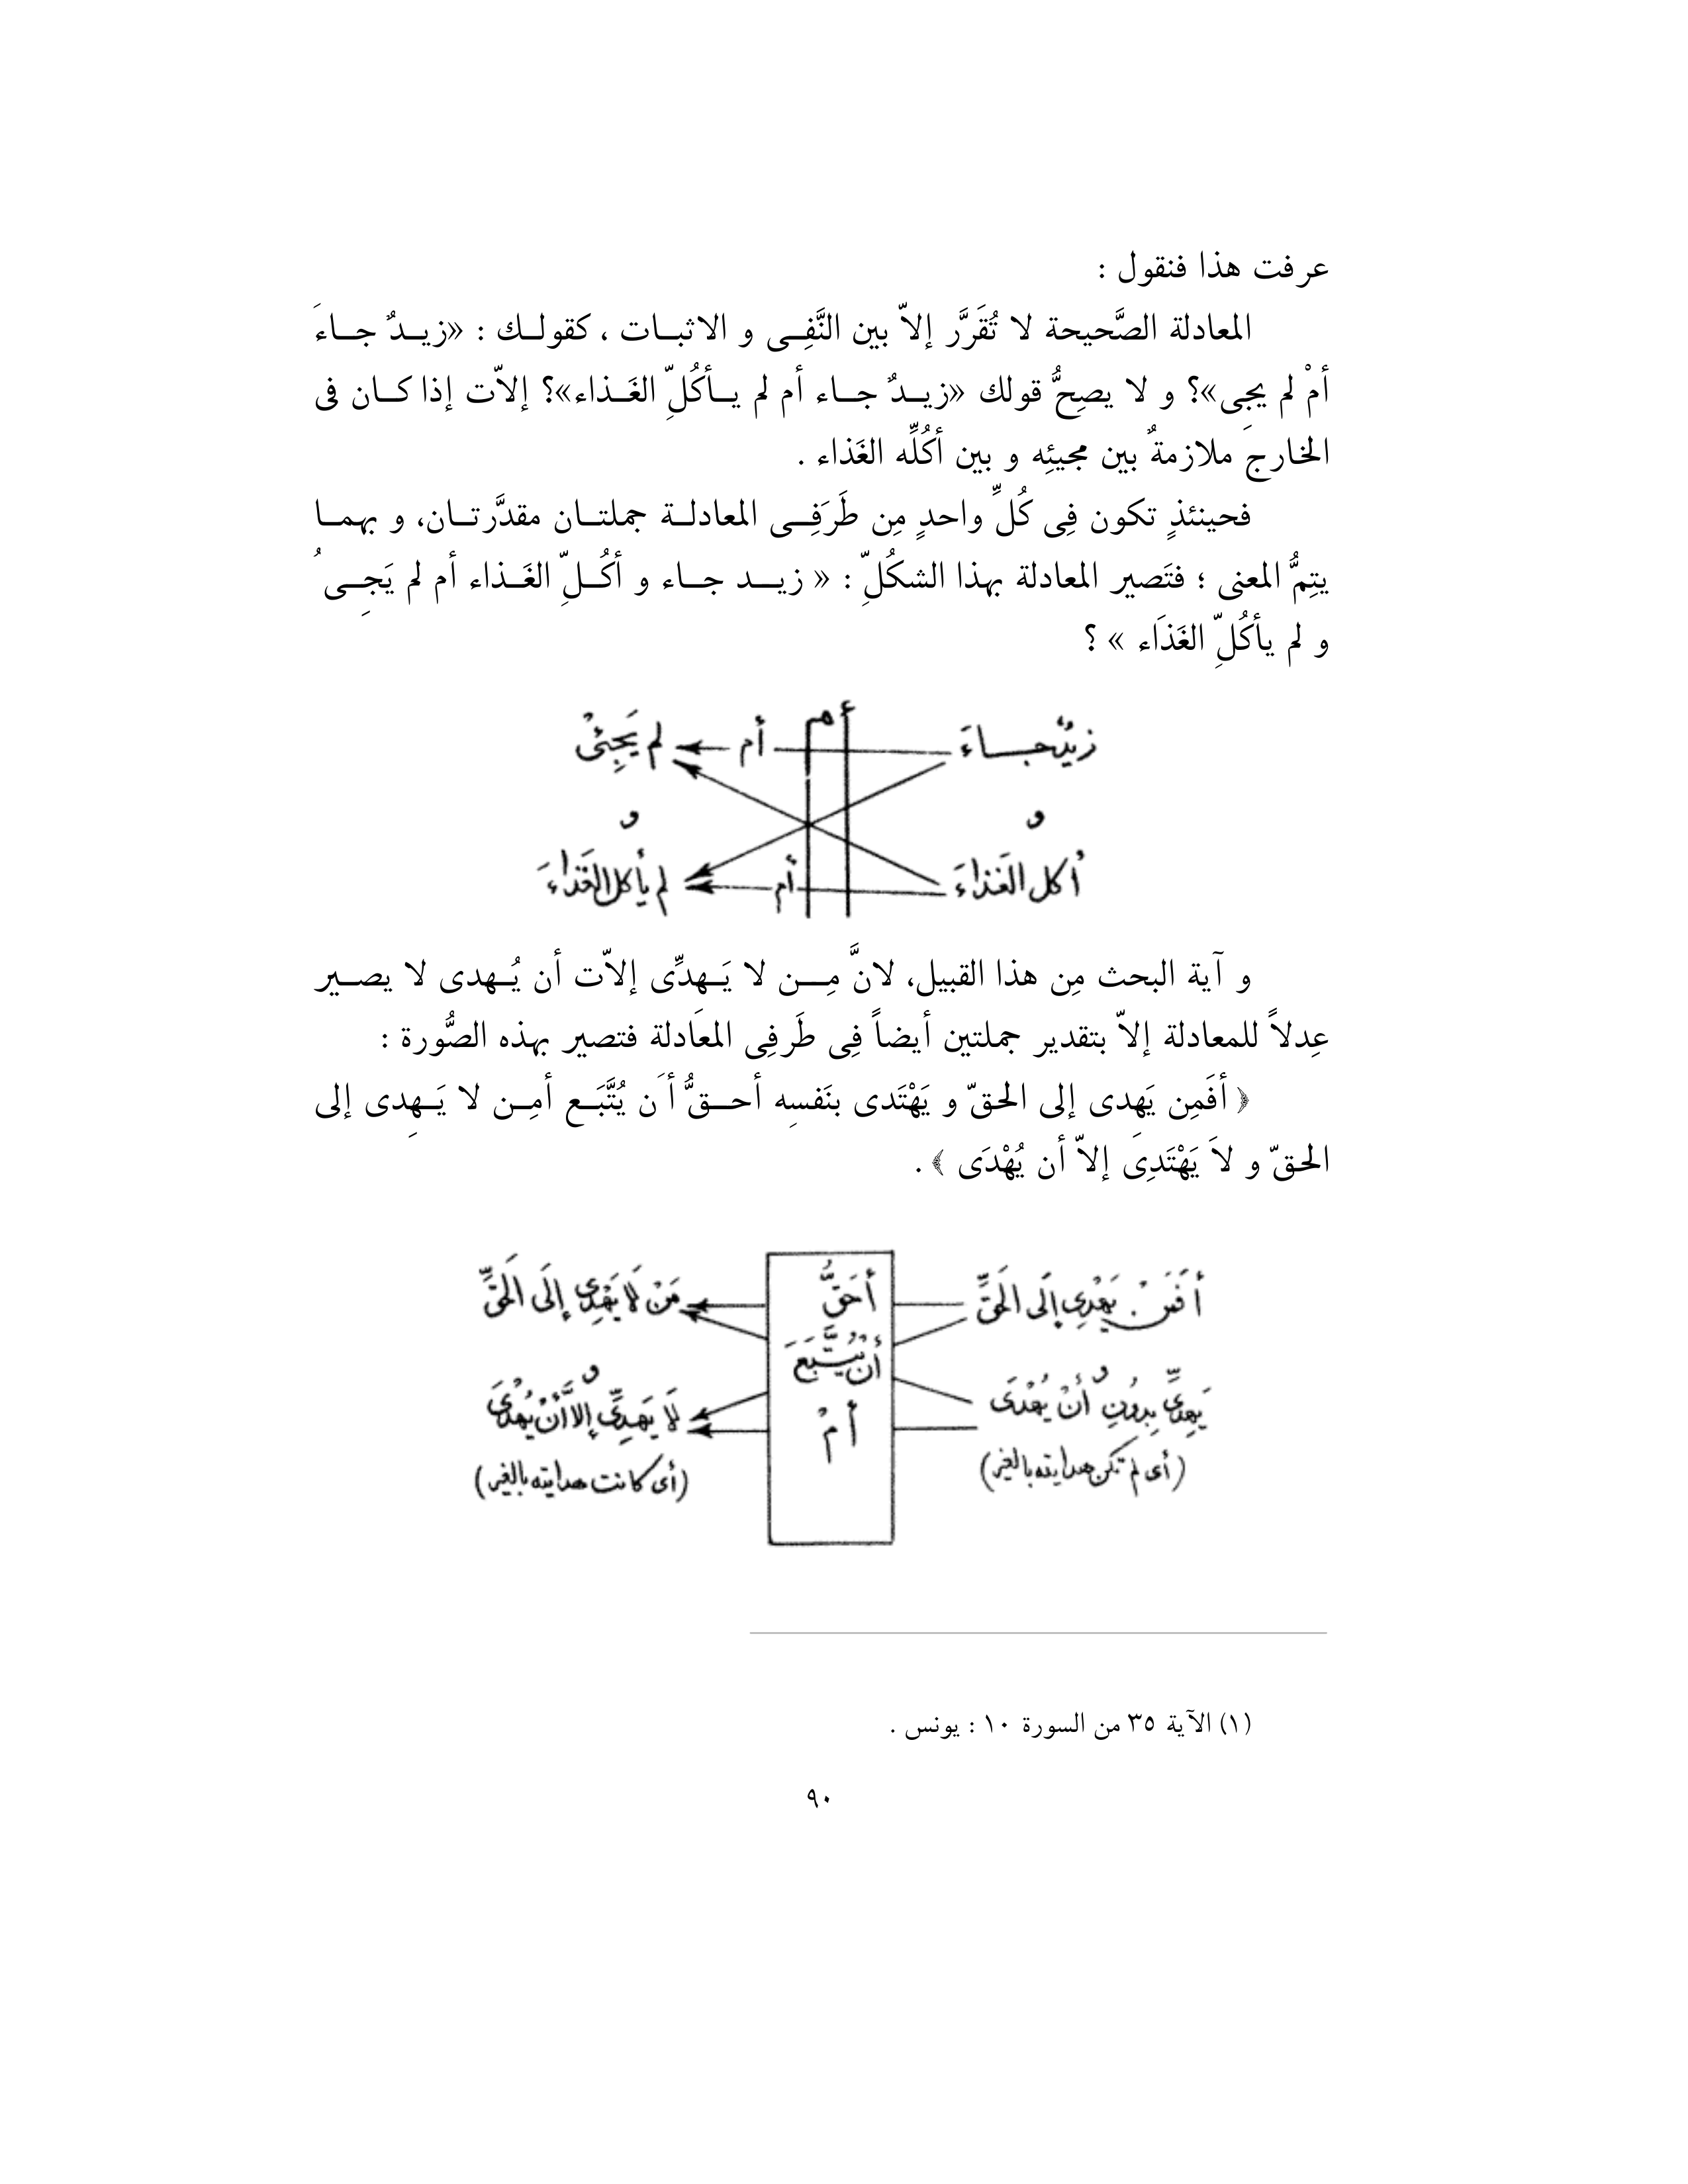 عرفت هذا فنقول :
المعادلة الصَّحيحة لا تُقَرَّر إلاّ بين النَّفِى و الاثبات ، كقولك : «زيدٌ جاءَ
أمْ لم يجِى»؟ و لا يصِحُّ قولك «زيدٌ جاء أم لم يأكُلِّ الغَذاء»؟ إلاّت إذا كان فى
الخارجَ ملازمةٌ بين مجيئِه و بين أكُلِّه الغَذاء .
فحينئذٍ تكون فِى كُلِّ واحدٍ مِن طَرَفِى المعادلة جملتان مقدَّرتان، و بهما
يتِمُّ المعنى ؛ فتَصير المعادلة بهذا الشكُلِّ : « زيد جاء و أكُلِّ الغَذاء أم لم يَجِىُ
و لم يأكُلِّ الغَذَاء » ؟
زيدٌ جاءَ أم أم لم يَجِئْ
و و
أكل الغَذاءَ أم لم يأكل الغَذاءَ
و آية البحث مِن هذا القبيل، لانَّ مِن لا يَهدِّى إلاّت أن يُهدى لا يصير
عِدلاً للمعادلة إلاّ بتقدير جملتين أيضاً فِى طَرفِى المعَادلة فتصير بهذه الصُّورة :
﴿ أفَمِن يَهدى إلى الحقّ و يَهْتَدى بنَفسِه أحقُّ أَن يُتَّبَع أمِن لا يَهِدى إلى
الحقّ و لاَ يَهْتَدِىَ إلاّ أن يُهْدَى ﴾ .
أفَمَنْ يَهْدِي إلَى الحَقِّ أحَقُّ مَنْ لَا يَهْدِي إلَى الحَقِّ
و أنْ يُتَّبَعَ و
يَهِدِّيَ بِدُونِ أنْ يُهْدَى أمْ لَا يَهِدِّي إلَّا أنْ يُهْدَى
(أى لم تكن هدايته بالغير) (أى كانت هدايته بالغير)
(١) الآية ٣٥ من السورة ١٠ : يونس .
٩٠